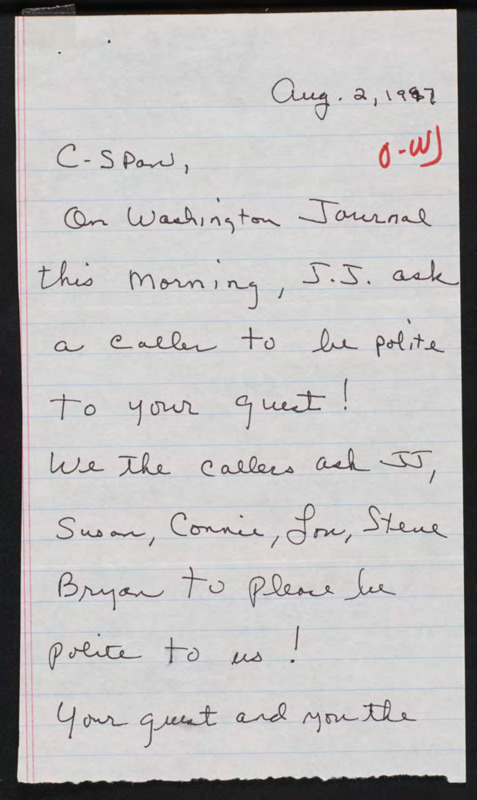 Aug. 2, 1997
O-WJ
C-Span,
On Washington Journal
this morning, J.J. ask
a caller to be polite
to your guest!
We the callers ask JJ,
Susan, Connie, Lou, Steve
Bryan to please be
polite to us!
Your guest and you the